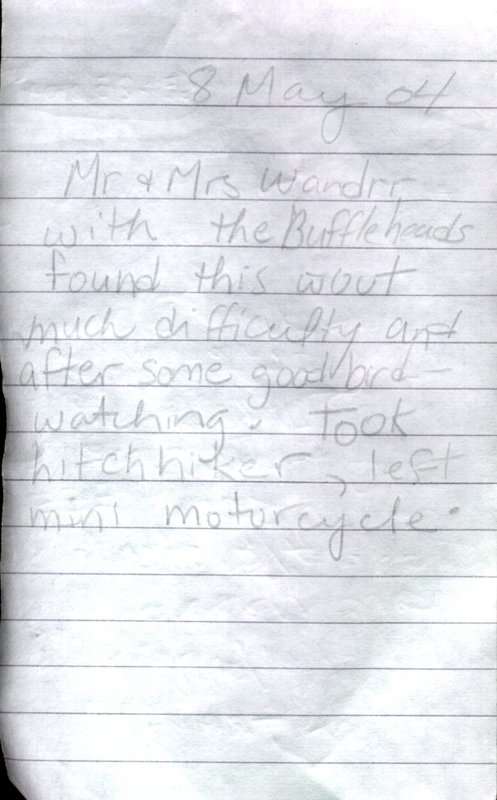 8 May 04
Mr & Mrs Wandrr
with the Buffleheads
found this wout
much difficulty and
after some good bird-
watching. Took
hitchhiker, left
mini motorcycle.